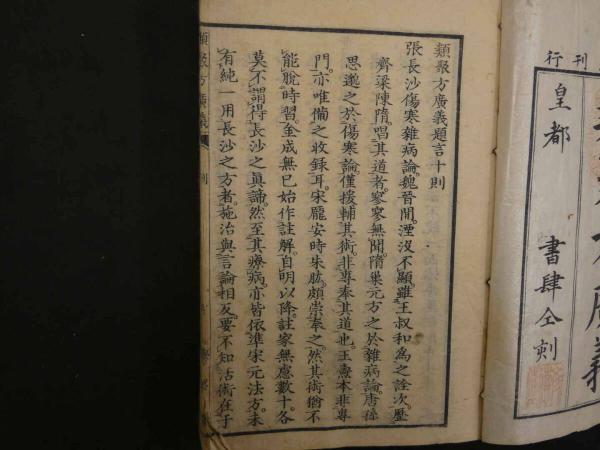 刊行
皇都 書肆仝刻
類聚方廣義題言十則
張長沙傷寒雜病論。魏晉間。湮沒不顯。雖王叔和為之詮次。歷
齊梁陳隋。唱其道者。寥寥無聞。隋巢元方之於雜病論。唐孫
思邈之於傷寒論。僅援輔其術。非專奉其道也。王燾本非專
門。亦唯備之收錄耳。宋龐安時朱肱。頗崇奉之。然其術猶不
能脫時習。金成無已始作註解。自明以降。註家無慮數十。各
莫不謂得長沙之真諦。然至其療病。亦皆依準宋元法方。未
有純一用長沙之方者。施治與言論相反。要不知活術在于
類聚方廣義